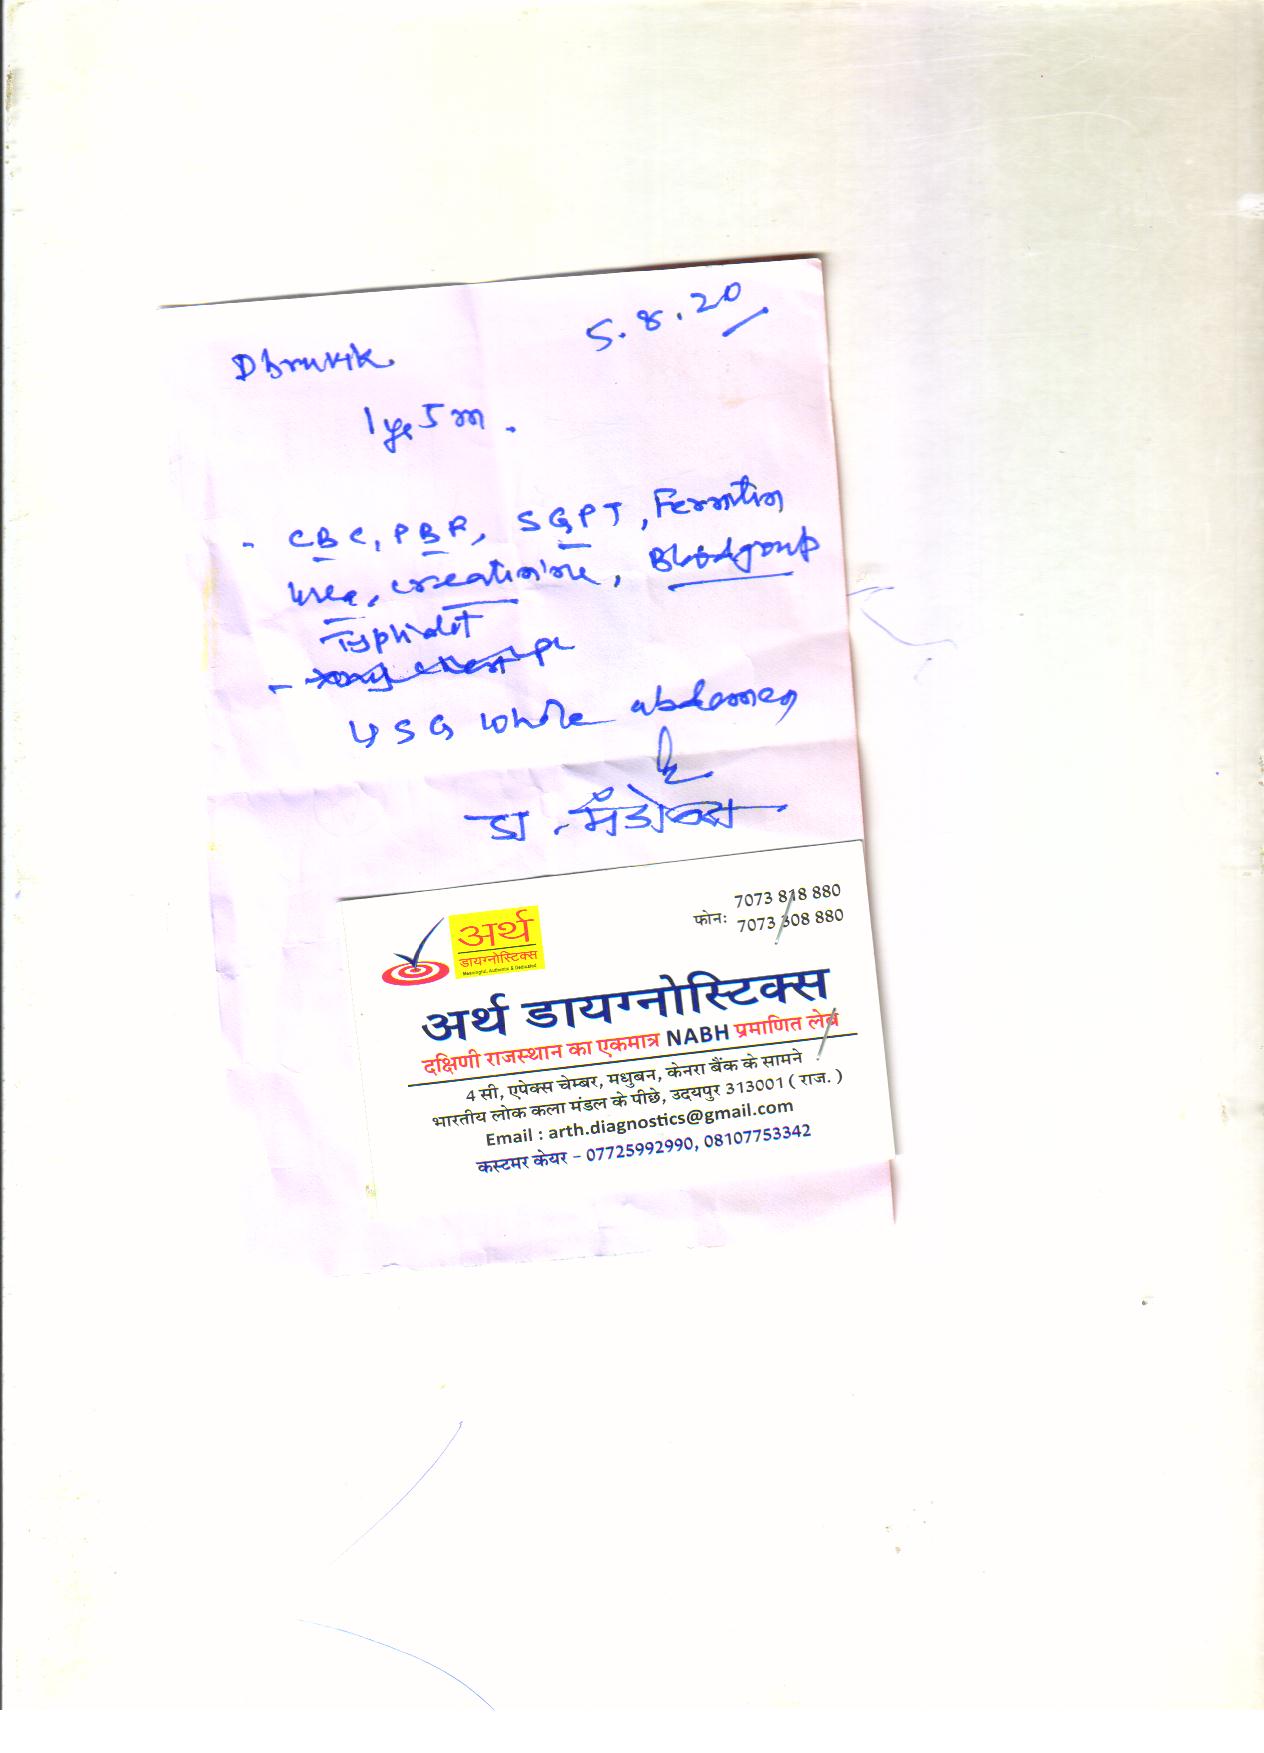 5.8.20
Dhruvik
1 yr 5 m.
- CBC, PBF, SGPT, Ferritin
Urea, creatinine, Blood group
Typhidot
-
USG whole abdomen
डा.
7073 818 880
फोनः 7073 308 880
अर्थ
डायग्नोस्टिक्स
Meaningful, Authentic & Dedicated
अर्थ डायग्नोस्टिक्स
दक्षिणी राजस्थान का एकमात्र NABH प्रमाणित लेब
4 सी, एपेक्स चेम्बर, मधुबन, केनरा बैंक के सामने
भारतीय लोक कला मंडल के पीछे, उदयपुर 313001 ( राज. )
Email : arth.diagnostics@gmail.com
कस्टमर केयर – 07725992990, 08107753342